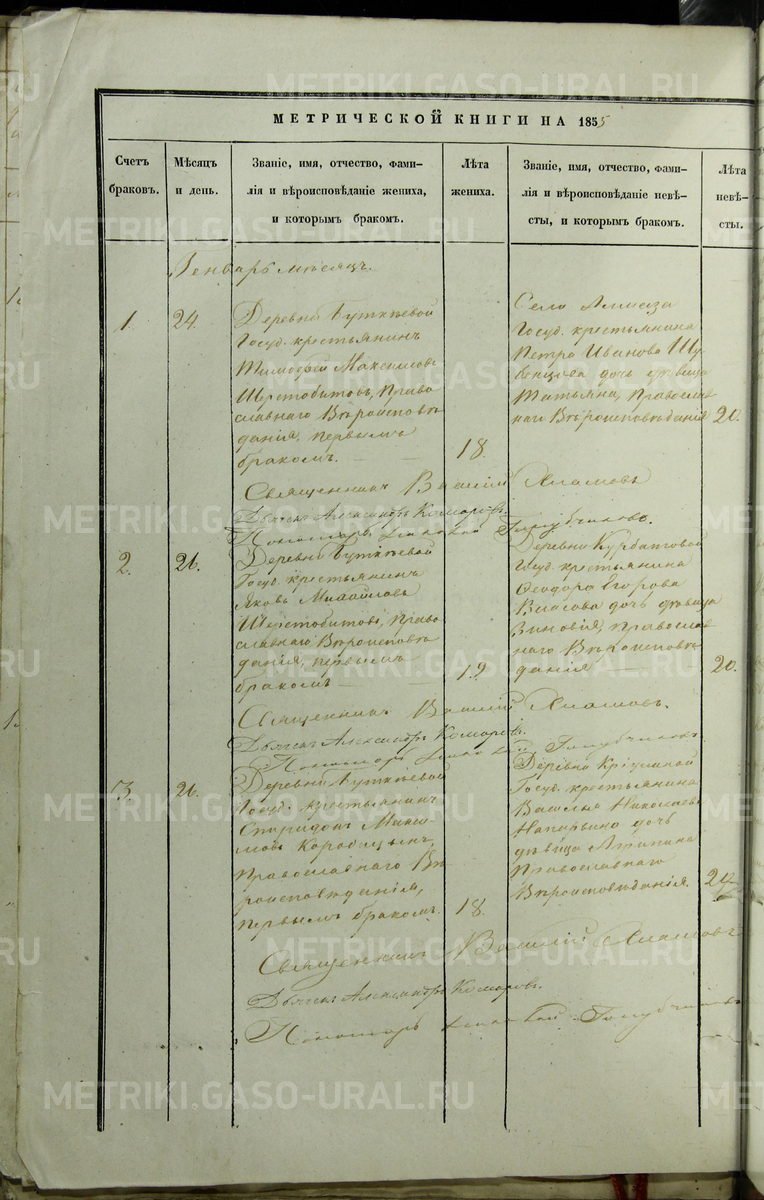 МЕТРИЧЕСКОЙ КНИГИ НА 1855
Счетъ
браковъ.
Мѣсяцъ
и день.
Званіе, имя, отчество, фами-
лія и вѣроисповѣданіе жениха,
и которымъ бракомъ.
Лѣта
жениха.
Званіе, имя, отчество, фами-
лія и вѣроисповѣданіе невѣ-
сты, и которымъ бракомъ.
Лѣта
невѣ-
сты.
Генварь мѣсяцъ.
1
24.
Деревни
Госуд. крестьянинъ
Тимоѳей Максимовъ
Шерстобитовъ, Право
славнаго Вѣроисповѣ
данія, первымъ
бракомъ.
18.
Села
Госуд. крестьянина
Петра Иванова Шу
венцова дочь дѣвица
Татьяна, Православ
наго Вѣроисповѣданія
20.
Священникъ Василій
Дьячекъ Александръ Комаровъ.
Пономарь Голубчиковъ.
2.
26.
Деревни
Госуд. крестьянинъ
Яковъ Михайловъ
Шерстобитовъ, Право
славнаго Вѣроисповѣ
данія, первымъ
бракомъ
19.
Деревни Курбатовой
Госуд. крестьянина
Ѳеодора Егорова
Власова дочь дѣвица
Зиновія, Православ
наго Вѣроисповѣ
данія
20.
Священникъ Василій
Дьячекъ Александръ Комаровъ.
Пономарь Голубчиковъ
3.
26.
Деревни
Госуд. крестьянинъ
Спиридонъ Макси
мовъ Коробицынъ,
Православнаго Вѣ
роисповѣданія,
первымъ бракомъ.
18.
Деревни
Госуд. крестьянина
Василья Николаева
дочь
дѣвица
Православнаго
Вѣроисповѣданія.
20
Священникъ Василій
Дьячекъ Александръ Комаровъ.
Пономарь Голубчиковъ
METRIKI.GASO-URAL.RU